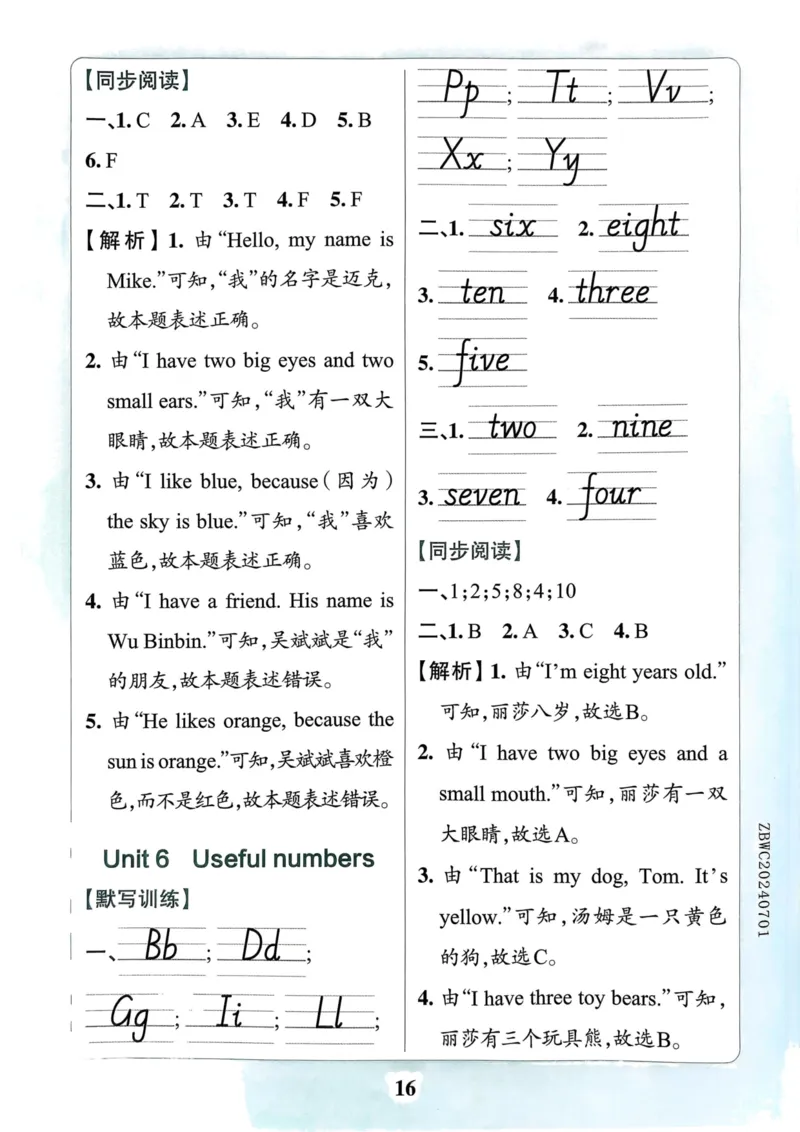 【同步阅读】
一、1. C 2. A 3. E 4. D 5. B
6. F
二、1. T 2. T 3. T 4. F 5. F
【解析】1. 由“Hello, my name is
Mike.”可知,“我”的名字是迈克,
故本题表述正确。
2. 由“I have two big eyes and two
small ears.”可知,“我”有一双大
眼睛,故本题表述正确。
3. 由“I like blue, because(因为)
the sky is blue.”可知,“我”喜欢
蓝色,故本题表述正确。
4. 由“I have a friend. His name is
Wu Binbin.”可知,吴斌斌是“我”
的朋友,故本题表述错误。
5. 由“He likes orange, because the
sun is orange.”可知,吴斌斌喜欢橙
色,而不是红色,故本题表述错误。
Unit 6 Useful numbers
【默写训练】
一、Bb; Dd;
Gg; Ii; Ll;
Pp; Tt; Vv;
Xx; Yy
二、1. six 2. eight
3. ten 4. three
5. five
三、1. two 2. nine
3. seven 4. four
【同步阅读】
一、1;2;5;8;4;10
二、1. B 2. A 3. C 4. B
【解析】1. 由“I’m eight years old.”
可知,丽莎八岁,故选B。
2. 由“I have two big eyes and a
small mouth.”可知,丽莎有一双
大眼睛,故选A。
3. 由“That is my dog, Tom. It’s
yellow.”可知,汤姆是一只黄色
的狗,故选C。
4. 由“I have three toy bears.”可知,
丽莎有三个玩具熊,故选B。
ZBWC20240701
16